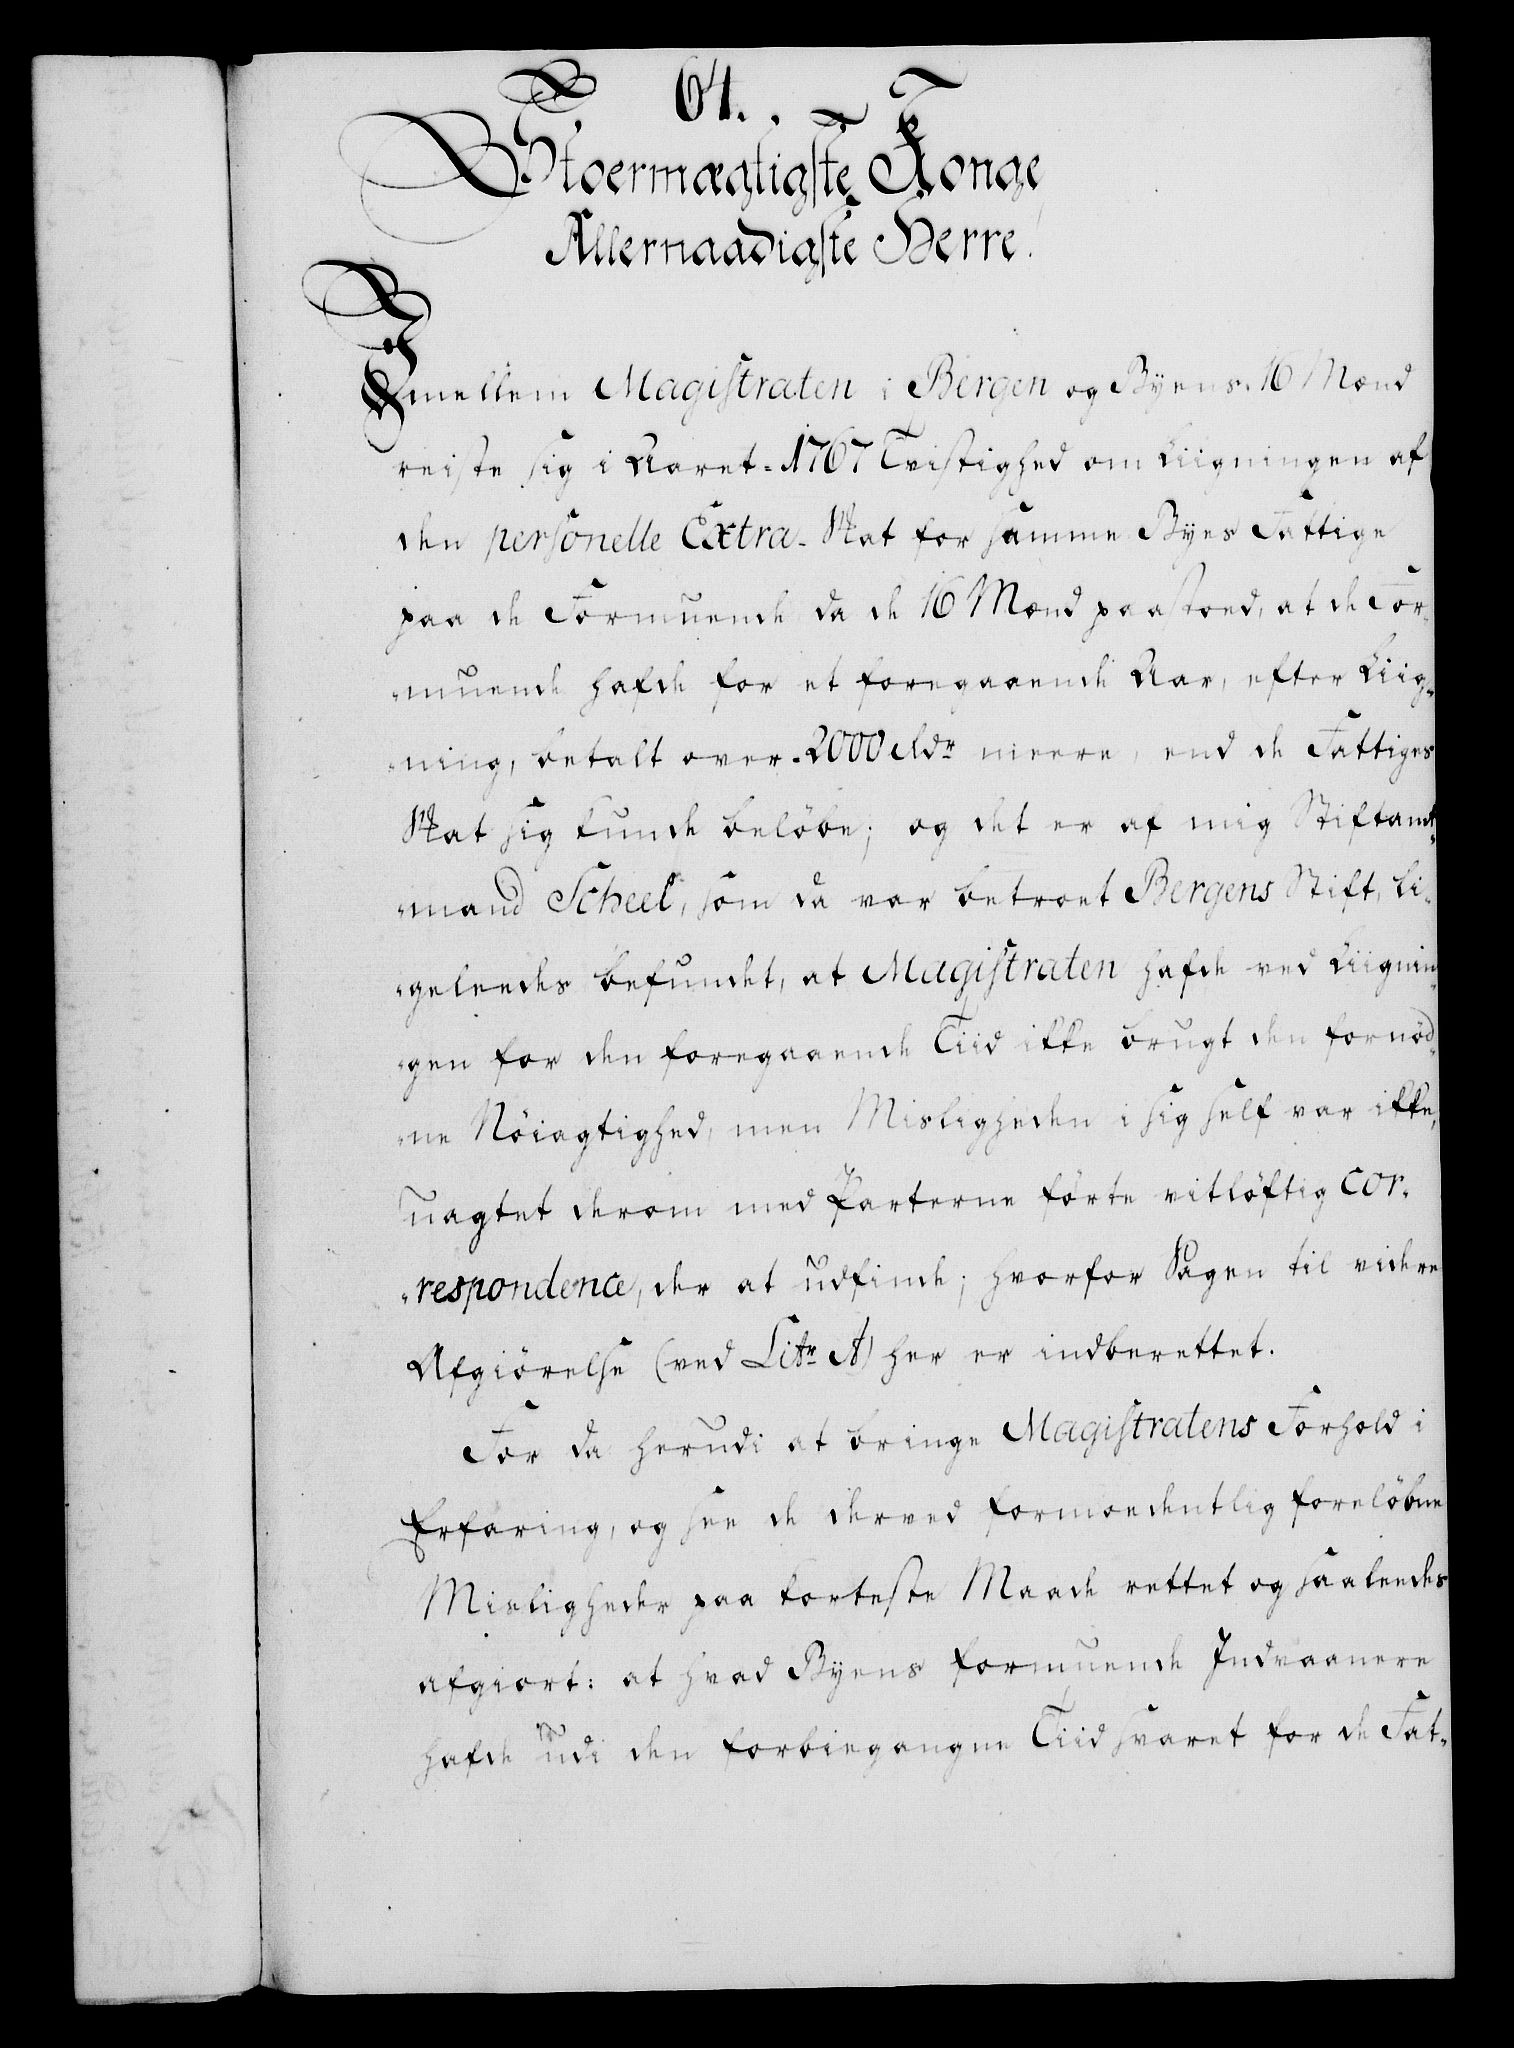 64.
Stoermægtigste Konge
Allernaadigste Herre!
Imellem Magistraten i Bergen og Byens 16 Mænd
reiste sig i Aaret 1767 Tvistighed om Liigningen af
den personelle Extra-Skat for samme Byes Fattige
paa de Formuende da de 16 Mænd paastoed, at de For-
muende hafde for et foregaaende Aar, efter Liig-
ning, betalt over 2000 Rdr meere, end de Fattiges
Skat sig kunde beløbe; og det er af mig Stiftamt-
mand Scheel, som da var betroet Bergens Stift, li-
geleedes befundet, at Magistraten hafde ved Liignin-
gen for den foregaaende Tiid ikke brugt den fornød-
ne Nöiagtighed, men Misligheden i sig self var ikke,
uagtet derom med Parterne førte vitløftig Cor-
respondence, der at udfinde; hvorfor Sagen til videre
Afgiörelse (ved Litr A) her er indberettet.
For da herudi at bringe Magistratens Forhold i
Erfaring, og see de derved formoedentlig foreløbne
Misligheder paa korteste Maade rettet og saaleedes
afgiort: at hvad Byens formuende Indvaanere
hafde udi den forbiegangne Tiid svaret for de Fat-